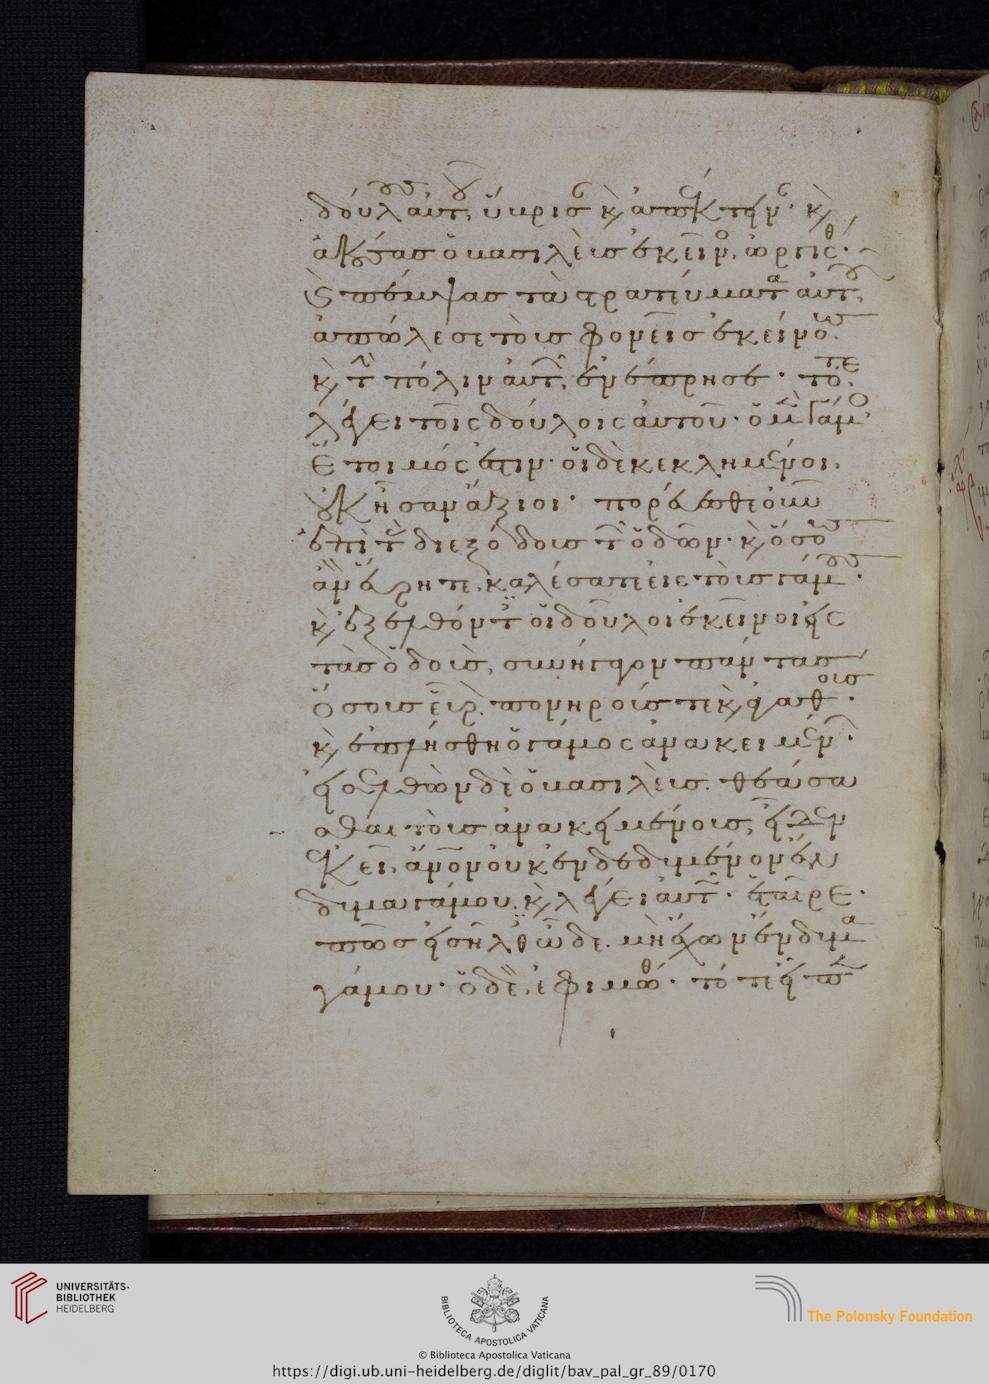 δούλους αὐτοῦ, ὕβρισαν καὶ ἀπέκτειναν· καὶ
ἀκούσας ὁ βασιλεὺς ἐκεῖνος, ὠργίσθη·
καὶ πέμψας τὰ στρατεύματα αὐτοῦ,
ἀπώλεσε τοὺς φονεῖς ἐκείνους.
καὶ τὴν πόλιν αὐτῶν, ἐνέπρησε· τότε
λέγει τοῖς δούλοις αὐτοῦ· ὁ μὲν γάμος
ἕτοιμός ἐστιν· οἱ δὲ κεκλημένοι,
οὐκ ἦσαν ἄξιοι· πορεύεσθε οὖν
ἐπὶ τὰς διεξόδους τῶν ὁδῶν· καὶ ὅσους
ἂν εὕρητε, καλέσατε εἰς τοὺς γάμους·
καὶ ἐξελθόντες οἱ δοῦλοι ἐκεῖνοι εἰς
τὰς ὁδούς, συνήγαγον πάντας
ὅσους εὗρον. πονηρούς τε καὶ ἀγαθούς·
καὶ ἐπλήσθη ὁ γάμος ἀνακειμένων·
εἰσελθὼν δὲ ὁ βασιλεὺς θεάσα
σθαι τοὺς ἀνακειμένους, εἶδεν
ἐκεῖ ἄνθρωπον οὐκ ἐνδεδυμένον ἔν
δυμα γάμου. καὶ λέγει αὐτῷ· ἑταῖρε·
πῶς εἰσῆλθες ὧδε. μὴ ἔχων ἔνδυμα
γάμου· ὁ δὲ, ἐφιμώθη· τότε εἶπεν
UNIVERSITÄTS-
BIBLIOTHEK
HEIDELBERG
BIBLIOTECA APOSTOLICA VATICANA
The Polonsky Foundation
© Biblioteca Apostolica Vaticana
https://digi.ub.uni-heidelberg.de/diglit/bav_pal_gr_89/0170